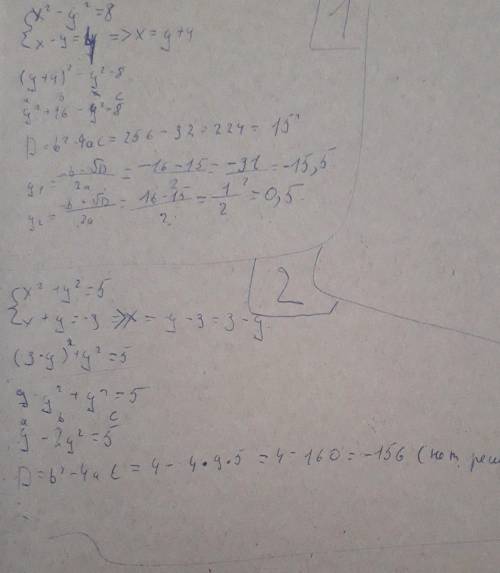 1
{x² - y² = 8
{x - y = 4 => x = y + 4
(y+4)² - y² = 8
a b c
y² + 16 - y² = 8
D = b² - 4ac = 256 - 32 = 224 = 15²
y₁ = (-b - √D)/2a = (-16 - 15)/2 = -31/2 = -15,5
y₂ = (-b + √D)/2a = (16 - 15)/2 = 1/2 = 0,5
2
{x² + y² = 5
{x + y = -3 => x = y - 3 = 3 - y
(3 - y)² + y² = 5
9 - y² + y² = 5
a b c
9 - 2y² = 5
D = b² - 4ac = 4 - 4•9•5 = 4 - 160 = -156 (нет реш